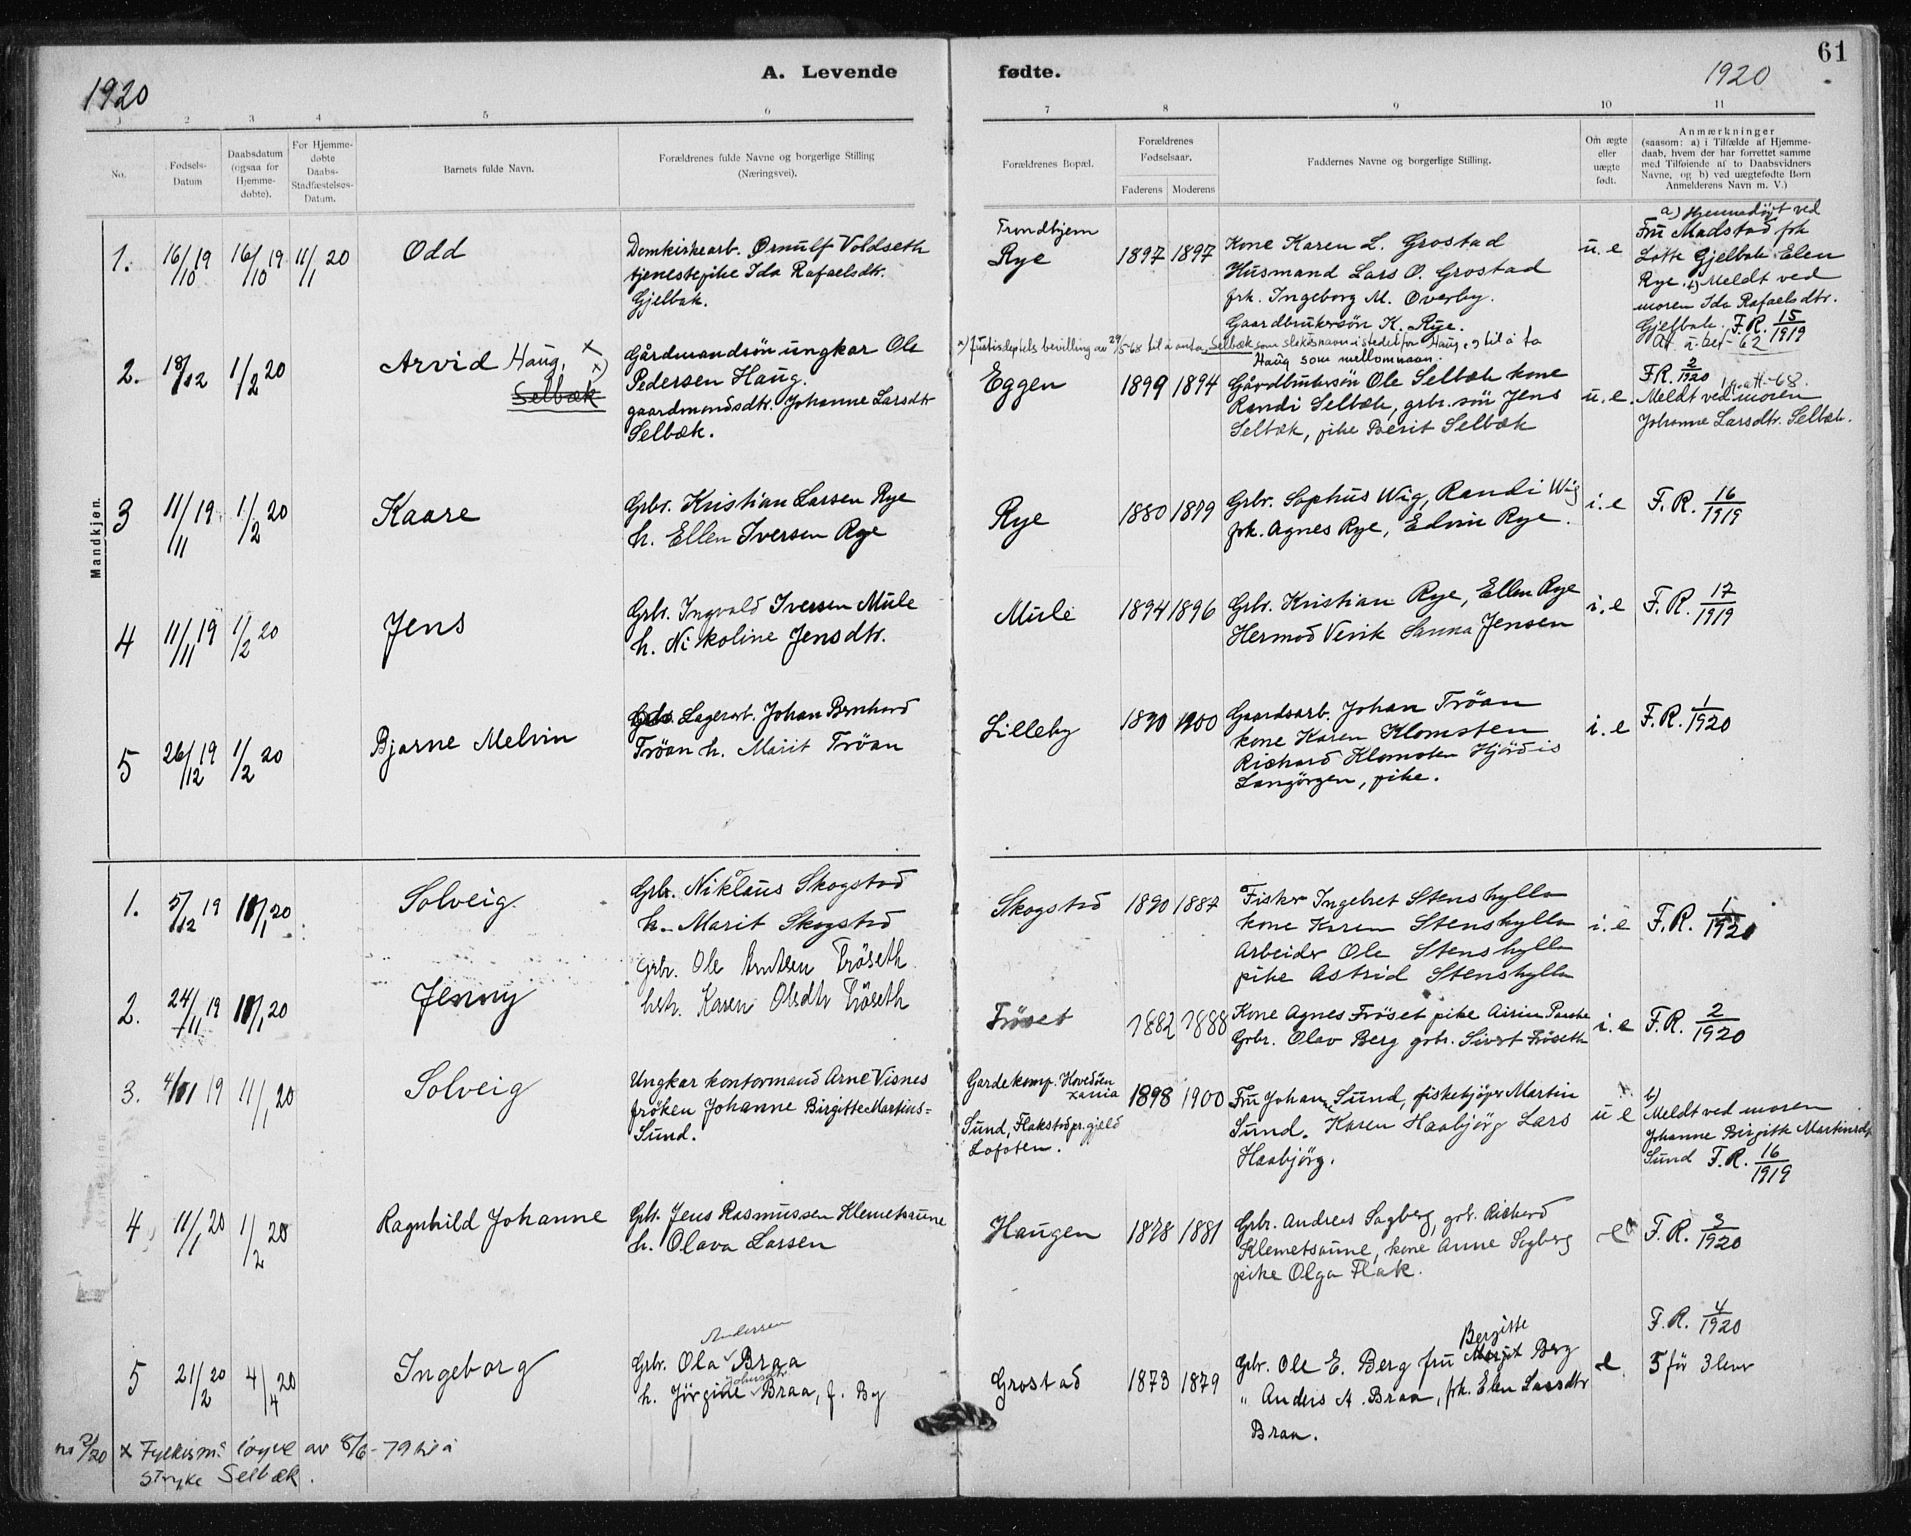 1920
A. Levende
fødte.
1920
61
1 2 3 4 5 6 7 8 9 10 11
No.
Fødsels-
Datum
Daabsdatum
(ogsaa for
Hjemme-
døbte).
For Hjemme-
døbte
Daabs-
Stadfæstelses-
Datum.
Barnets fulde Navn.
Forældrenes fulde Navne og borgerlige Stilling
(Næringsvei).
Forældrenes Bopæl.
Forældrenes
Fødselsaar.
Faderens Moderens
Faddernes Navne og borgerlige Stilling.
Om ægte
eller
uægte
født.
Anmærkninger
(saasom: a) i Tilfælde af Hjemme-
daab, hvem der har forrettet samme
med Tilføiende af to Daabsvidners
Navne, og b) ved uægtefødte Børn
Anmelderens Navn m. V.)
Mandkjøn.
1. 16/10 19 16/10 19 11/1 20 Odd
Domkirkearb. Ørnulf Voldseth
tjenestepike Ida Rafaelsdtr.
Gjelbak.
Trondhjem
Rye 1897 1897
Kone Karen L. Grostad
Husmand Lars O. Grostad
frk. Ingeborg M. Overby.
Gaardbrukersön K. Rye.
u. e
a) Hjemmedöpt ved
Fru Madstad frk
Lotte Gjelbak Elen
Rye. b) Meldt ved
moren Ida Rafaelsdtr.
Gjelbak. F.R. 15/1919
2. 18/12 1/2 20 Arvid Haug. x
x)
Selbæk
Gårdmandsön ungkar Ole
Pedersen Haug.
gaardmandsdtr. Johanne Larsdtr
Selbæk.
x) Justisdeptets bevilling av 29/5-68 til å anta Selbæk som slektsnavn istedet for Haug, og til å ta
Haug som mellomnavn.
Eggen 1899 1894
Gårdbrukersön Ole Selbæk kone
Randi Selbæk, grbr. sön Jens
Selbæk, pike Berit Selbæk
u. e.
F.R. 2/1920
Meldt ved moren
Johanne Larsdtr. Selbæk.
3 11/11 19 1/2 20 Kaare
Grbr. Kristian Larsen Rye
h. Ellen Iversen Rye
Rye 1880 1879
Grbr. Sophus Wig, Randi Wig
frk. Agnes Rye, Edvin Rye.
i. e F.R. 16/1919
4 11/11 19 1/2 20 Jens
Grbr. Ingvald Iversen Mule
h. Nikoline Jensdtr.
Mule 1894 1896
Grbr. Kristian Rye, Ellen Rye
Hermod Verik Sanna Jensen
i. e F.R. 17/1919
5 26/12 19 1/2 20 Bjarne Melvin
Lagerarb. Johan Bernhard
Tröan h. Marit Tröan
Lilleby 1890 1900
Gaardsarb. Johan Tröan
kone Karen Klomsten
Richard Klomsten Hjördis
Langörgen, pike.
i. e F.R. 1/1920
1. 5/12 19 11/1 20 Solveig
Grbr. Niklaus Skogstad
h. Marit Skogstad
Skogstad 1890 1887
Fisker Ingebret Stenshylla
kone Karen Stenshylla
Arbeider Ole Stenshylla
pike Astrid Stenshylla
i. e F.R. 1/1920
2. 24/11 19 11/1 20 Jenny
Grbr. Ole Arntsen Tröseth
hstr. Karen Olsdtr Tröseth
Tröset 1882 1888
Kone Agnes Fröset pike Airin
Grbr. Olav Berg grbr. Sivert Fröseth
i. e F.R. 2/1920
3. 4/11 19 11/1 20 Solveig
Ungkar kontormand Arne Visnes
fröken Johanne Birgitte Martins=
Sund.
Gardekomp. Hovedöen
Xania
Sund, Flakstad pr.gjeld
Lofoten.
1898 1900
Fru Johanne Sund, fiskekjöper Martin
Sund. Karen Haabjörg Lars
Haabjörg.
u e
b)
Meldt ved moren
Johanne Birgitte Martinsdtr
Sund F.R. 16/1919
4 11/1 20 1/2 20 Ragnhild Johanne
Grbr. Jens Rasmussen Klemetsaune
h. Olava Larsen
Haugen 1878 1881
Grbr. Andreas Sagberg, grbr. Richard
Klemetsaune, kone Anne Sagberg
pike Olga Flak.
e F.R. 3/1920
5 21/2 20 4/4 20 Ingeborg
Andersen
Grbr. Ola Braa
Johnsdtr
h. Jörgine Braa, f. By
Grostad 1873 1879
Bergitte
Grbr. Ole E. Berg fru Margit Berg
" Anders A. Braa, frk. Elen Larsdtr
Braa.
e.
F.R. 4/1920
5 för 3 lever
no 2/20 x Fylkesm. löyve av 8/6-79 til å
stryke Selbæk.